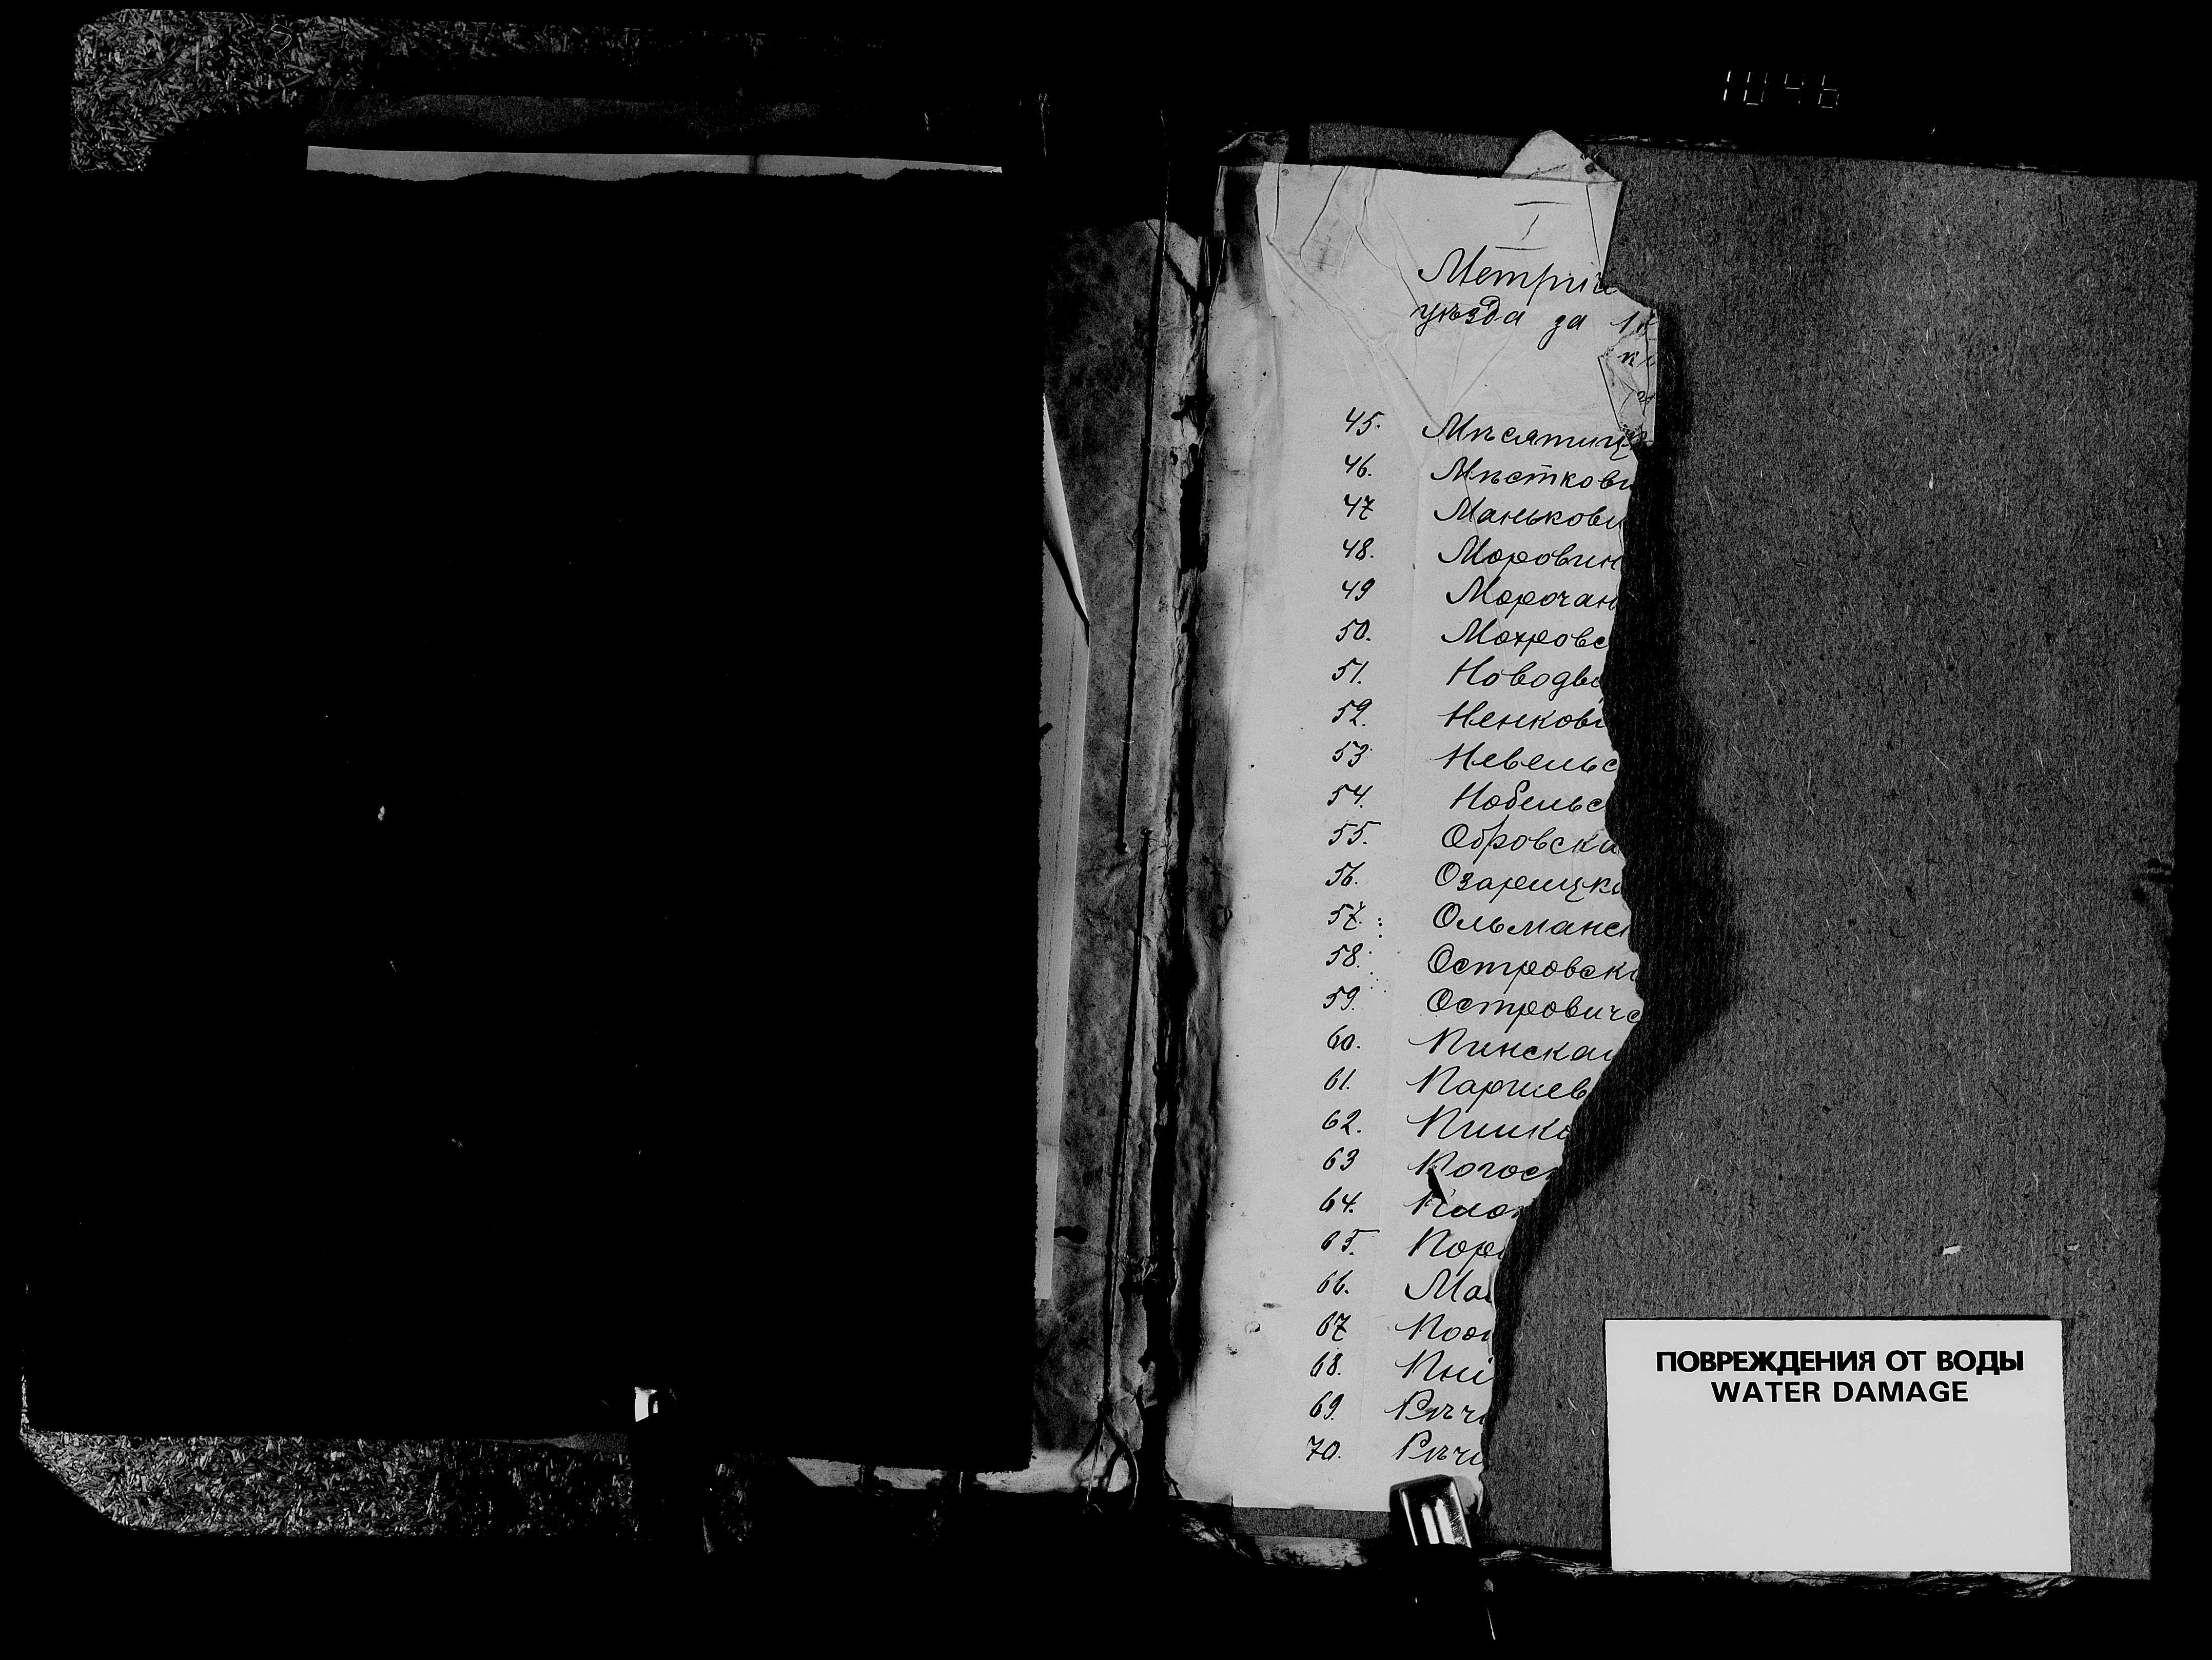 1046
I
Метрич
уѣзда за 1
45. Мѣсятиц
46. Мѣсткови
47 Манькови
48. Моровин
49 Морочан
50. Мохровс
51. Новодво
52. Ненкови
53. Невельс
54. Нобельс
55. Обровска
56. Озарицка
57. Ольманс
58. Островск
59. Островичс
60. Пинская
61. Паршев
62. Пинк
63 Погост
64. Плот
65. Поре
66.
67
68.
69. Рѣч
70. Рѣчи
ПОВРЕЖДЕНИЯ ОТ ВОДЫ
WATER DAMAGE